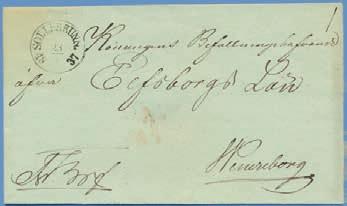 SOLLEBRUNN
23
37
Konungens Befallningshafvande
öfver
Elfsborgs Län
Wenersborg
Fr. Bref